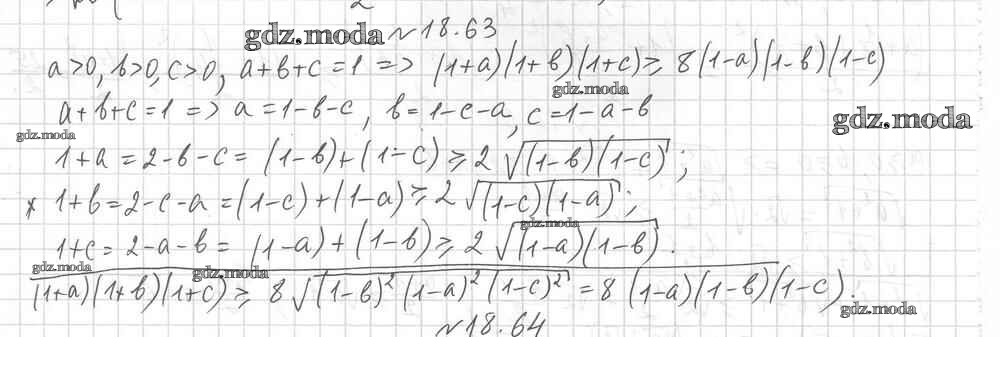 №18.63
a>0, b>0, c>0, a+b+c=1 => (1+a)(1+b)(1+c) ≥ 8(1-a)(1-b)(1-c)
a+b+c=1 => a=1-b-c, b=1-c-a, c=1-a-b
1+a=2-b-c=(1-b)+(1-c) ≥ 2√((1-b)(1-c));
* 1+b=2-c-a=(1-c)+(1-a) ≥ 2√((1-c)(1-a));
1+c=2-a-b=(1-a)+(1-b) ≥ 2√((1-a)(1-b)).
(1+a)(1+b)(1+c) ≥ 8√((1-b)²(1-a)²(1-c)²) = 8(1-a)(1-b)(1-c).
№18.64
gdz.moda
gdz.moda
gdz.moda
gdz.moda
gdz.moda
gdz.moda
gdz.moda
gdz.moda